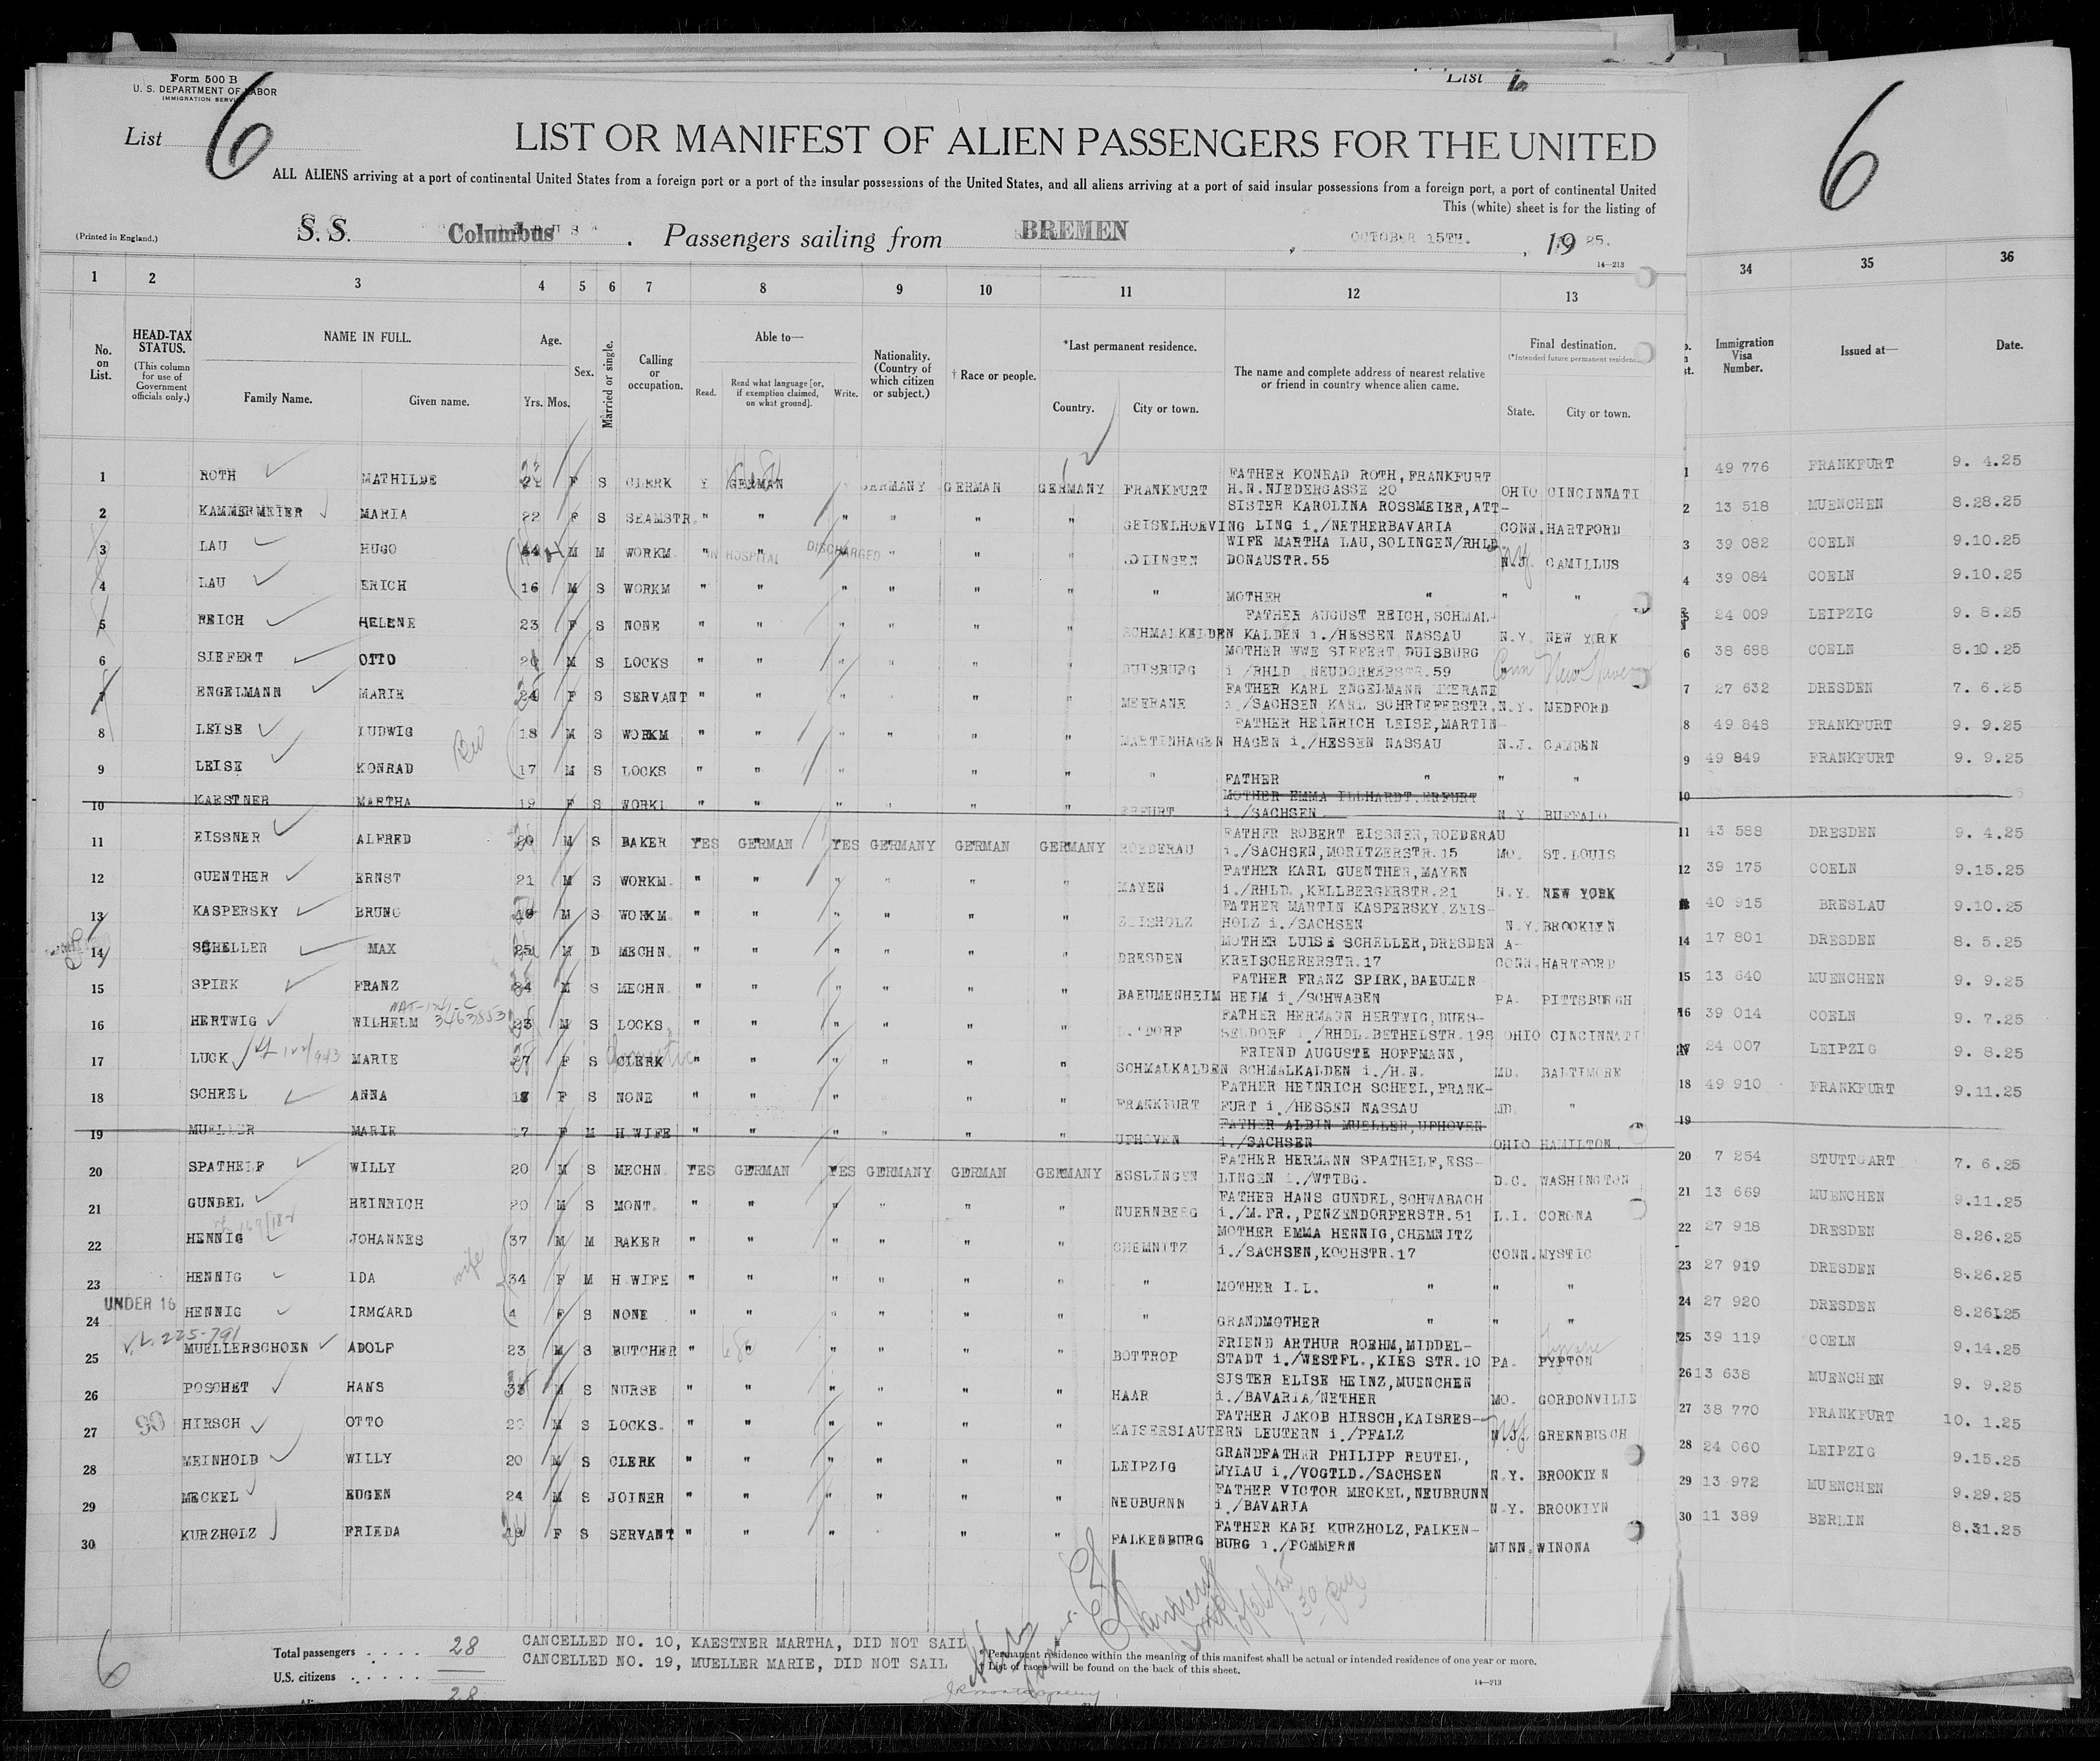 Form 500 B
U. S. DEPARTMENT OF LABOR
IMMIGRATION SERVICE
List 6
List 6
6
LIST OR MANIFEST OF ALIEN PASSENGERS FOR THE UNITED
ALL ALIENS arriving at a port of continental United States from a foreign port or a port of the insular possessions of the United States, and all aliens arriving at a port of said insular possessions from a foreign port, a port of continental United
This (white) sheet is for the listing of
(Printed in England.)
S. S. Columbus . Passengers sailing from BREMEN , OCTOBER 15TH. , 19 25.
14—213
1 2 3 4 5 6 7 8 9 10 11 12 13 34 35 36
No. on List.
HEAD-TAX STATUS.
(This column for use of Government officials only.)
NAME IN FULL.
Family Name. Given name.
Age.
Yrs. Mos.
Sex.
Married or single.
Calling or occupation.
Able to—
Read. Read what language [or, if exemption claimed, on what ground]. Write.
Nationality. (Country of which citizen or subject.)
† Race or people.
*Last permanent residence.
Country. City or town.
The name and complete address of nearest relative or friend in country whence alien came.
Final destination.
(*Intended future permanent residence)
State. City or town.
Immigration Visa Number.
Issued at—
Date.
1 ROTH MATHILDE F S CLERK Y GERMAN GERMANY GERMAN GERMANY FRANKFURT FATHER KONRAD ROTH, FRANKFURT H.N.NIEDERGASSE 20 OHIO CINCINNATI 1 49 776 FRANKFURT 9. 4.25
2 KAMMERMEIER MARIA 22 F S SEAMSTR. " " " " " " GEISELHOEVING SISTER KAROLINA ROSSMEIER, ATT- LING i./NETHERBAVARIA CONN. HARTFORD 2 13 518 MUENCHEN 8.28.25
3 LAU HUGO 44 M M WORKM. " IN HOSPITAL " DISCHARGED " " " SOLINGEN WIFE MARTHA LAU, SOLINGEN/RHLD DONAUSTR.55 N.J. CAMILLUS 3 39 082 COELN 9.10.25
4 LAU ERICH 16 M S WORKM " " " " " " " MOTHER " " " 4 39 084 COELN 9.10.25
5 REICH HELENE 23 F S NONE " " " " " " SCHMALKELDEN FATHER AUGUST REICH, SCHMAL- KALDEN i./HESSEN NASSAU N.Y. NEW YORK 24 009 LEIPZIG 9. 8.25
6 SIEFERT OTTO M S LOCKS " " " " " " DUISBURG MOTHER WWE SIEFERT, DUISBURG i /RHLD NEUDORFERSTR.59 Conn New Haven 6 38 688 COELN 8.10.25
7 ENGELMANN MARIE 24 F S SERVANT " " " " " " MEERANE FATHER KARL ENGELMANN MEERANE i./SACHSEN KARL SCHRIEFERSTR. N.Y. MEDFORD 7 27 632 DRESDEN 7. 6.25
8 LEISE LUDWIG 18 M S WORKM " " " " " " MARTINHAGEN FATHER HEINRICH LEISE, MARTIN- HAGEN i./HESSEN NASSAU N.J. CAMDEN 8 49 848 FRANKFURT 9. 9.25
9 LEISE KONRAD 17 M S LOCKS " " " " " " " FATHER " " " 9 49 849 FRANKFURT 9. 9.25
10 KAESTNER MARTHA 19 F S WORKM " " " " " " ERFURT MOTHER EMMA ILLHARDT, ERFURT i./SACHSEN N.Y. BUFFALO 10
11 EISSNER ALFRED M S BAKER YES GERMAN YES GERMANY GERMAN GERMANY ROEDERAU FATHER ROBERT EISSNER, ROEDERAU i./SACHSEN, MORITZERSTR.15 MO. ST.LOUIS 11 43 588 DRESDEN 9. 4.25
12 GUENTHER ERNST 21 M S WORKM. " " " " " " MAYEN FATHER KARL GUENTHER, MAYEN i./RHLD., KELLBERGERSTR.21 N.Y. NEW YORK 12 39 175 COELN 9.15.25
13 KASPERSKY BRUNO M S WORKM. " " " " " " ZEISHOLZ FATHER MARTIN KASPERSKY, ZEIS- HOLZ i./SACHSEN N.Y. BROOKLYN 40 915 BRESLAU 9.10.25
14 SCHELLER MAX 25 M D MECHN. " " " " " " DRESDEN MOTHER LUISE SCHELLER, DRESDEN A- KREISCHERERSTR.17 CONN. HARTFORD 14 17 801 DRESDEN 8. 5.25
15 SPIRK FRANZ M S MECHN. " " " " " " BAEUMENHEIM FATHER FRANZ SPIRK, BAEUMEN- HEIM i./SCHWABEN PA. PITTSBURGH 15 13 640 MUENCHEN 9. 9.25
16 HERTWIG WILHELM 23 M S LOCKS. " " " " " " D.'DORF FATHER HERMANN HERTWIG, DUES- SELDORF i./RHDL.BETHELSTR.198 OHIO CINCINNATI 16 39 014 COELN 9. 7.25
17 LUCK MARIE 27 F S CLERK domestic " " " " " " SCHMALKALDEN FRIEND AUGUSTE HOFFMANN, SCHMALKALDEN i./H.N. MD. BALTIMORE 24 007 LEIPZIG 9. 8.25
18 SCHEEL ANNA F S NONE " " " " " " FRANKFURT FATHER HEINRICH SCHEEL, FRANK- FURT i./HESSEN NASSAU MD. " 18 49 910 FRANKFURT 9.11.25
19 MUELLER MARIE 17 F M H.WIFE " " " " " " UFHOVEN FATHER ALBIN MUELLER, UFHOVEN i./SACHSEN OHIO HAMILTON. 19
20 SPATHELF WILLY 20 M S MECHN. YES GERMAN YES GERMANY GERMAN GERMANY ESSLINGEN FATHER HERMANN SPATHELF, ESS- LINGEN i./WTTBG. D.C. WASHINGTON 20 7 254 STUTTGART 7. 6.25
21 GUNDEL HEINRICH 20 M S MONT. " " " " " " NUERNBERG FATHER HANS GUNDEL, SCHWABACH i./M.FR., PENZENDORFERSTR.51 L.I. CORONA 21 13 669 MUENCHEN 9.11.25
22 HENNIG JOHANNES 37 M M BAKER " " " " " " CHEMNITZ MOTHER EMMA HENNIG, CHEMNITZ i./SACHSEN, KOCHSTR.17 CONN. MYSTIC 22 27 918 DRESDEN 8.26.25
23 HENNIG IDA wife 34 F M H.WIFE " " " " " " " MOTHER I.L. " " " 23 27 919 DRESDEN 8.26.25
UNDER 16
24 HENNIG IRMGARD 4 F S NONE " " " " " " " GRANDMOTHER " " 24 27 920 DRESDEN 8.26.25
V.L. 225-791
25 MUELLERSCHOEN ADOLF 23 M S BUTCHER " " " " " " BOTTROP FRIEND ARTHUR ROEHM, MIDDEL- STADT i./WESTFL., KIES STR.10 PA. PYPTON 25 39 119 COELN 9.14.25
26 POSCHET HANS 33 M S NURSE " " " " " " HAAR SISTER ELISE HEINZ, MUENCHEN i./BAVARIA/NETHER MO. GORDONVILLE 26 13 638 MUENCHEN 9. 9.25
27 90 HIRSCH OTTO M S LOCKS. " " " " " " KAISERSLAUTERN FATHER JAKOB HIRSCH, KAISRES- LEUTERN i./PFALZ N.J. GREENBISCH 27 38 770 FRANKFURT 10. 1.25
28 MEINHOLD WILLY 20 M S CLERK " " " " " " LEIPZIG GRANDFATHER PHILIPP REUTEL, MYLAU i./VOGTLD./SACHSEN N.Y. BROOKLYN 28 24 060 LEIPZIG 9.15.25
29 MECKEL EUGEN 24 M S JOINER " " " " " " NEUBURNN FATHER VICTOR MECKEL, NEUBRUNN i./BAVARIA N.Y. BROOKLYN 29 13 972 MUENCHEN 9.29.25
30 KURZHOLZ FRIEDA 19 F S SERVANT " " " " " FALKENBURG FATHER KARL KURZHOLZ, FALKEN- BURG i./POMMERN MINN. WINONA 30 11 389 BERLIN 8.31.25
6
Total passengers . . . . 28
U.S. citizens . . . . .
28
CANCELLED NO. 10, KAESTNER MARTHA, DID NOT SAIL
CANCELLED NO. 19, MUELLER MARIE, DID NOT SAIL
* Permanent residence within the meaning of this manifest shall be actual or intended residence of one year or more.
† List of races will be found on the back of this sheet.
14—213